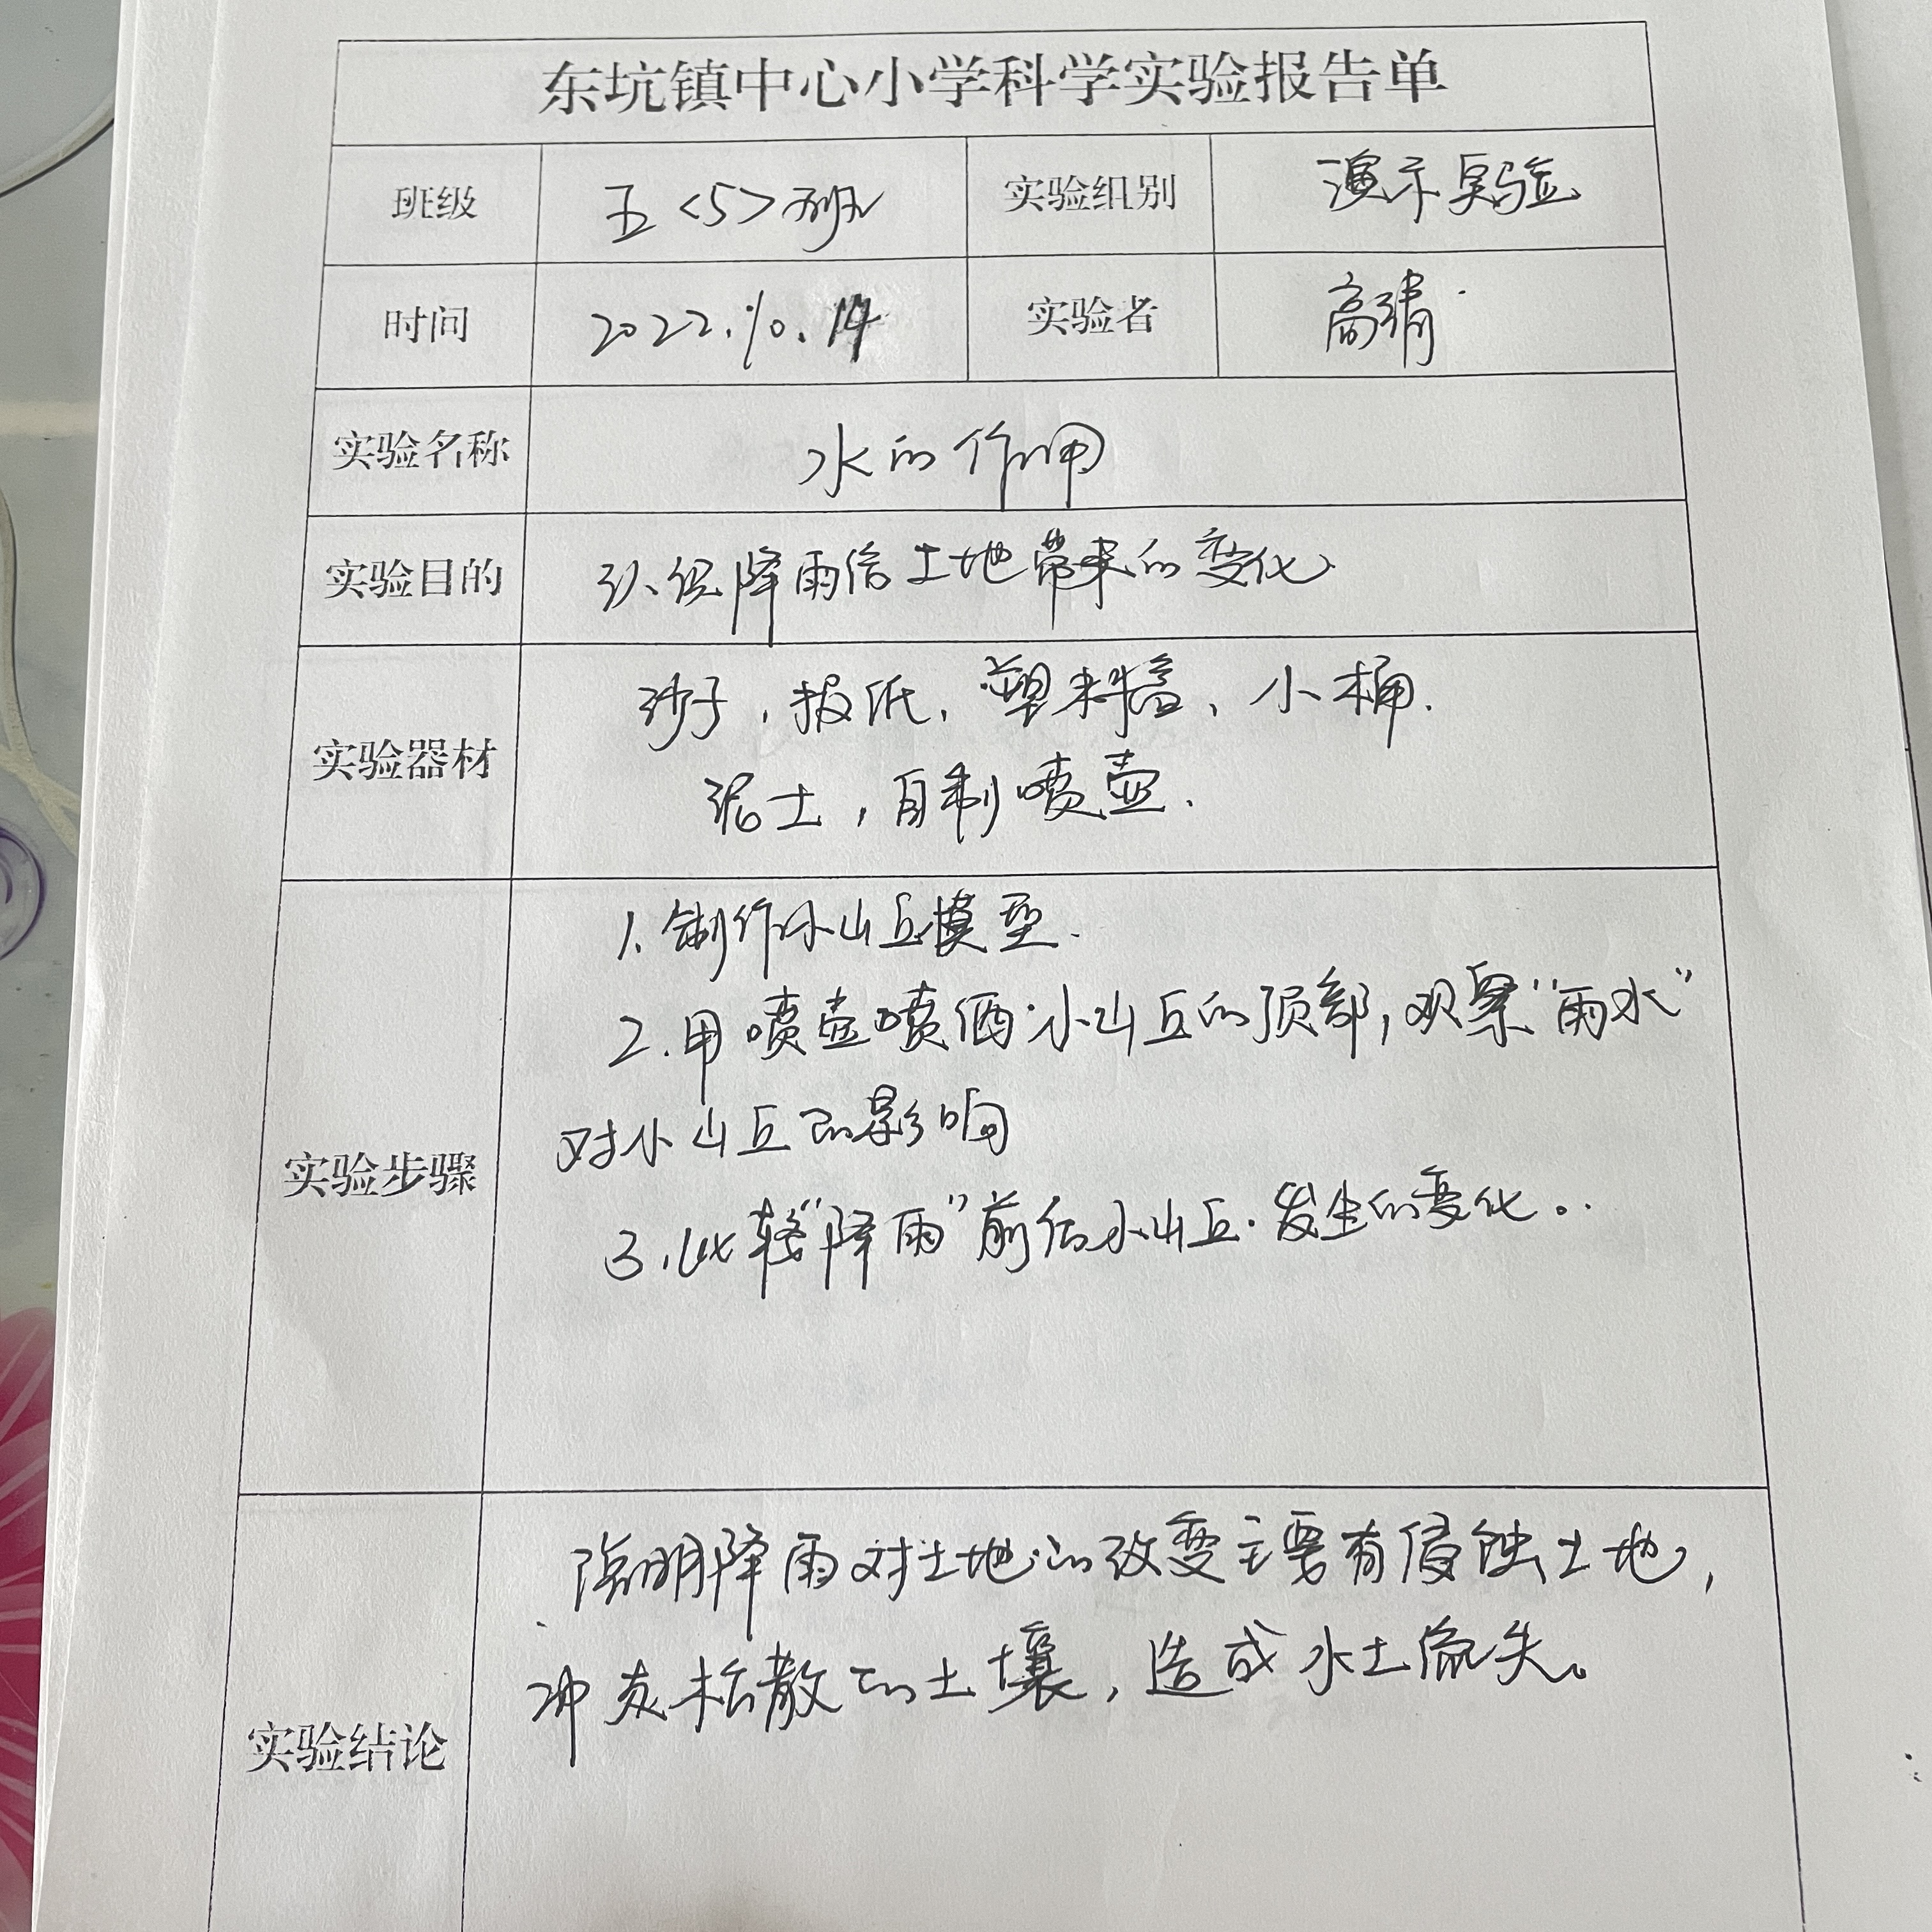 东坑镇中心小学科学实验报告单
班级 五<5>班 实验组别 演示实验
时间 2022.10.14 实验者 高清
实验名称 水的作用
实验目的 认识降雨给土地带来的变化
实验器材 沙子,报纸,塑料盒、小桶.
泥土,自制喷壶.
实验步骤 1.制作小山丘模型.
2.用喷壶喷洒小山丘的顶部,观察“雨水”
对小山丘的影响
3.比较“降雨”前后小山丘发生的变化。
实验结论 降雨对土地的改变主要有侵蚀土地,
冲走松散的土壤,造成水土流失。